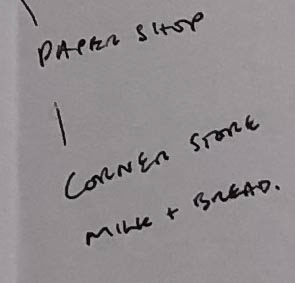 PAPER SHOP
CORNER STORE
MILK + BREAD.